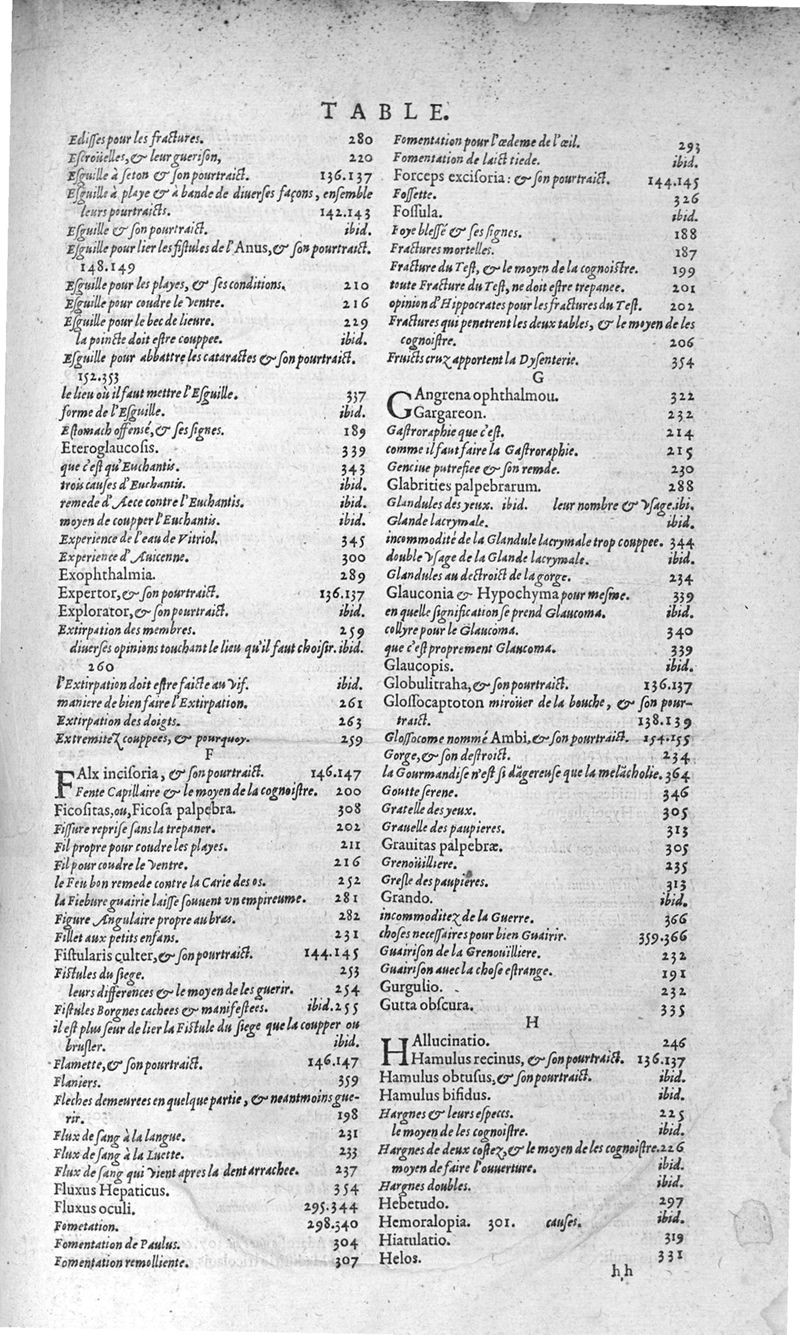 TABLE.
Edisses pour les fractures. 280
Escroüelles, & leur guerison, 220
Esguille à seton & son pourtraict. 136.137
Esguille à playe & à bande de diuerses façons, ensemble
leurs pourtraicts. 142.143
Esguille & son pourtraict. ibid.
Esguille pour lier les fistules de l'Anus, & son pourtraict.
148.149
Esguille pour les playes, & ses conditions. 210
Esguille pour coudre le ventre. 216
Esguille pour le bec de lieure. 229
la poincte doit estre couppee. ibid.
Esguille pour abbattre les cataractes & son pourtraict.
152.353
le lieu où il faut mettre l'Esguille. 337
forme de l'Esguille. ibid.
Estomach offensé, & ses signes. 189
Eteroglaucosis. 339
que c'est qu'Euchantis. 343
trois causes d'Euchantis. ibid.
remede d'Aece contre l'Euchantis. ibid.
moyen de coupper l'Euchantis. ibid.
Experience de l'eau de Vitriol. 345
Experience d'Auicenne. 300
Exophthalmia. 289
Expertor, & son pourtraict. 136.137
Explorator, & son pourtraict. ibid.
Extirpation des membres. 259
diuerses opinions touchant le lieu qu'il faut choisir. ibid.
260
l'Extirpation doit estre faicte au vif. ibid.
maniere de bien faire l'Extirpation. 261
Extirpation des doigts. 263
Extremitez couppees, & pourquoy. 259
F
FAlx incisoria, & son pourtraict. 146.147
Fente Capillaire & le moyen de la cognoistre. 200
Ficositas, ou, Ficosa palpebra. 308
Fissure reprise sans la trepaner. 202
Fil propre pour coudre les playes. 211
Fil pour coudre le ventre. 216
le Feu bon remede contre la Carie des os. 252
la Fiebure guairie laisse souuent vn empireume. 281
Figure Angulaire propre au bras. 282
Fillet aux petits enfans. 231
Fistularis culter, & son pourtraict. 144.145
Fistules du siege. 253
leurs differences & le moyen de les guerir. 254
Fistules Borgnes cachees & manifestees. ibid.255
il est plus seur de lier la Fistule du siege que la coupper ou
brusler. ibid.
Flamette, & son pourtraict. 146.147
Flaniers. 359
Fleches demeurees en quelque partie, & neantmoins gue-
rir. 198
Flux de sang à la langue. 231
Flux de sang à la Luette. 233
Flux de sang qui vient apres la dent arrachee. 237
Fluxus Hepaticus. 354
Fluxus oculi. 295.344
Fometation. 298.340
Fomentation de Paulus. 304
Fomentation remolliente. 307
Fomentation pour l'œdeme de l'œil. 293
Fomentation de laict tiede. ibid.
Forceps excisoria: & son pourtraict. 144.145
Fossette. 326
Fossula. ibid.
Foye blessé & ses signes. 188
Fractures mortelles. 187
Fracture du Test, & le moyen de la cognoistre. 199
toute Fracture du Test, ne doit estre trepanee. 201
opinion d'Hippocrates pour les fractures du Test. 202
Fractures qui penetrent les deux tables, & le moyen de les
cognoistre. 206
Fruicts cruz apportent la Dysenterie. 354
G
GAngrena ophthalmou. 322
Gargareon. 232
Gastroraphie que c'est. 214
comme il faut faire la Gastroraphie. 215
Genciue putrefiee & son remde. 230
Glabrities palpebrarum. 288
Glandules des yeux. ibid. leur nombre & vsage.ibi.
Glande lacrymale. ibid.
incommodité de la Glandule lacrymale trop couppee. 344
double vsage de la Glande lacrymale. ibid.
Glandules au destroict de la gorge. 234
Glauconia & Hypochyma pour mesme. 339
en quelle signification se prend Glaucoma. ibid.
collyre pour le Glaucoma. 340
que c'est proprement Glaucoma. 339
Glaucopis. ibid.
Globulitraha, & son pourtraict. 136.137
Glossocaptoton miroüer de la bouche, & son pour-
traict. 138.139
Glossocome nommé Ambi, & son pourtraict. 154.155
Gorge, & son destroict. 234
la Gourmandise n'est si dāgereuse que la melācholie. 364
Goutte serene. 346
Gratelle des yeux. 305
Grauelle des paupieres. 313
Grauitas palpebræ. 305
Grenoüilliere. 235
Gresle des paupiéres. 313
Grando. ibid.
incommoditez de la Guerre. 366
choses necessaires pour bien Guairir. 359.366
Guairison de la Grenoüilliere. 232
Guairison auec la chose estrange. 191
Gurgulio. 232
Gutta obscura. 335
H
HAllucinatio. 246
Hamulus recinus, & son pourtraict. 136.137
Hamulus obtusus, & son pourtraict. ibid.
Hamulus bifidus. ibid.
Hargnes & leurs especcs. 225
le moyen de les cognoistre. ibid.
Hargnes de deux costez, & le moyen de les cognoistre.226
moyen de faire l'ouuerture. ibid.
Hargnes doubles. ibid.
Hebetudo. 297
Hemoralopia. 301. causes. ibid.
Hiatulatio. 319
Helos. 331
h,h